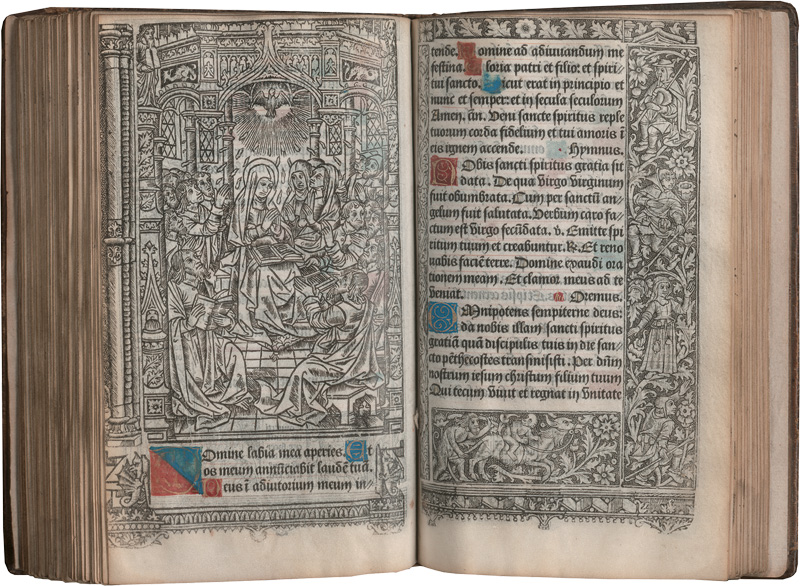 omine labia mea aperies. Et
os meum annūciabit laudē tuā.
Deus ī adiutorium meum in-
tende. Domine ad adiuuandum me
festina. Gloria patri et filio: et spiri
tui sancto. Sicut erat in principio et
nunc et semper: et in secula seculorum
Amen. Añ. Veni sancte spiritus reple
tuorum corda fidelium et tui amoris ī
eis ignem accende. Hymnus.
Nobis sancti spiritus gratia sit
data. De qua virgo virginum
fuit obumbrata. Cum per sanctū an
gelum fuit salutata. Verbum caro fa-
ctum est virgo fecūdata. v. Emitte spi
ritum tuum et creabuntur. R. Et reno
uabis faciē terre. Domine exaudi ora
tionem meam. Et clamor meus ad te
veniat. Oremus.
Omnipotens sempiterne deus:
da nobis illam sancti spiritus
gratiā quā discipulis tuis in die san-
cto pēthecostes transmisisti. Per dn̄m
nostrum iesum christum filium tuum
Qui tecum viuit et regnat in vnitate